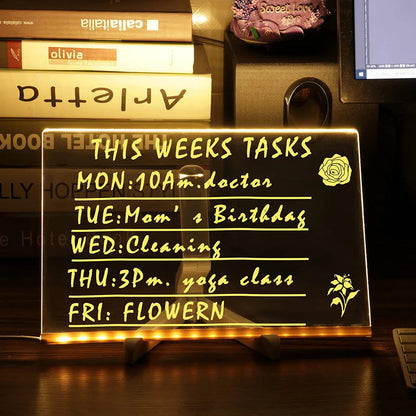 callaitalia
olivia
Arletta
THE HOTEL BOOK
LLY HOPPEN STYLE
The Hote
Sweet Love
THIS WEEKS TASKS
MON:10Am.doctor
TUE:Mom's Birthdag
WED:Cleaning
THU:3Pm. yoga class
FRI: FLOWERN